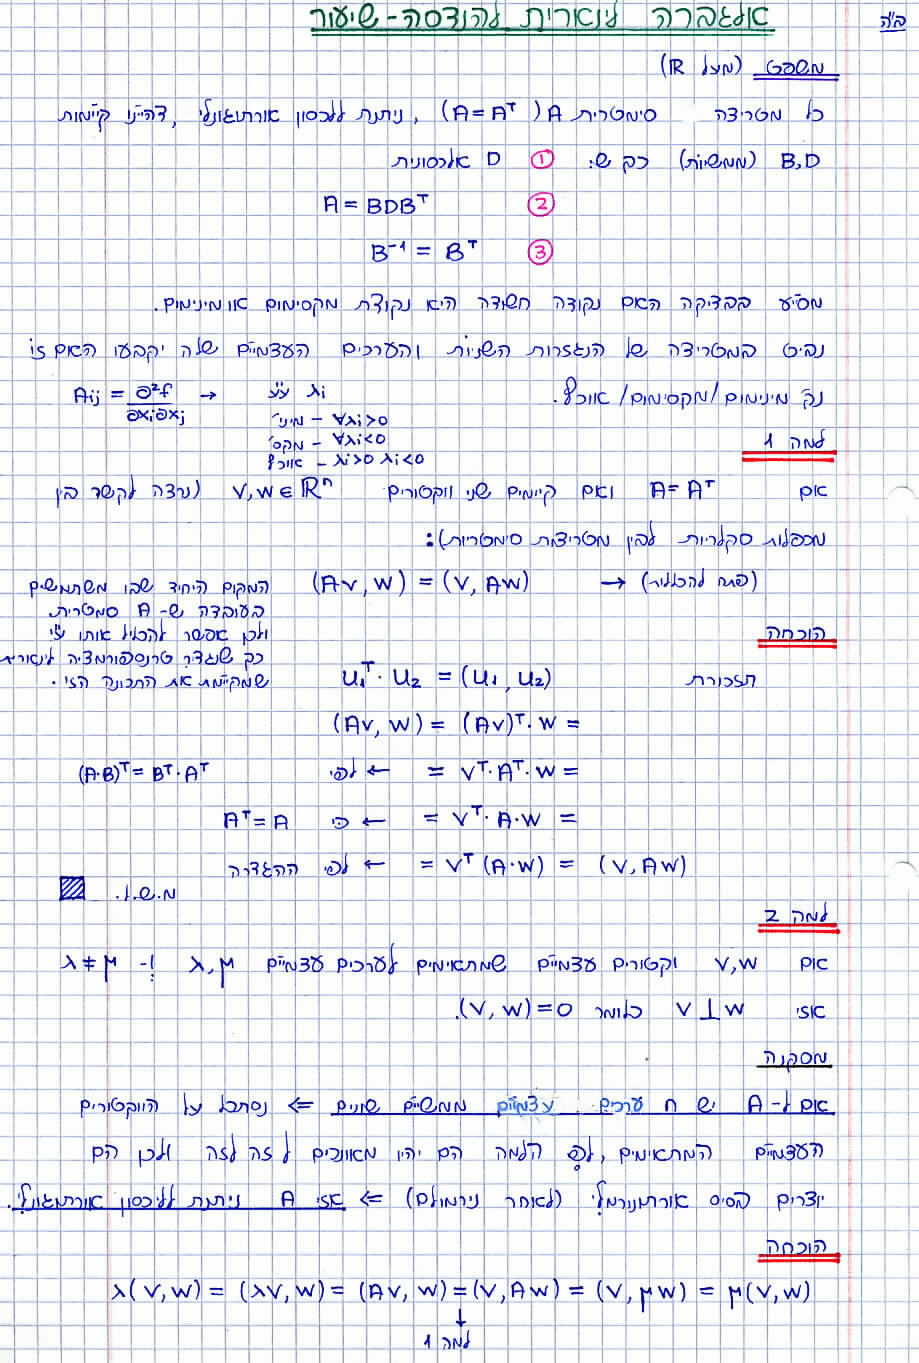 ב"ה
אלגברה לינארית להנדסה - שיעור
משפט (מעל R)
כל מטריצה סימטרית A (A = Aᵀ), ניתנת ללכסון אורתוגונלי, דהיינו קיימות
B,D (ממשיות) כך ש: ① D אלכסונית
② A = BDBᵀ
③ B⁻¹ = Bᵀ
מסייע בבדיקה האם נקודה חשודה היא נקודת מקסימום או מינימום.
נביט במטריצה של הנגזרות השניות והערכים העצמיים שלה יקבעו האם is
נק' מינימום/מקסימום/אוכף.
Aij = ∂²f/∂xi∂xj → λi ע"ע
מיני' – ∀λi>0
מקס' – ∀λi<0
אוכף – λi>0 λi<0
למה 1
אם A = Aᵀ ואם קיימים שני ווקטורים v,w ∈ ℝⁿ (נרצה לקשר בין
מכפלות סקלריות לבין מטריצות סימטריות):
(Av, w) = (v, Aw) → (פתח להכללות)
המקום היחיד שבו משתמשים
בעובדה ש-A סמטרית
ולכן אפשר להכליל אותו ע"י
כך שנגדיר טרנספורמציה לינארית
שמקיימת את התכונה הזו.
הוכחה
תזכורת u₁ᵀ·u₂ = (u₁, u₂)
(Av, w) = (Av)ᵀ·w =
= vᵀ·Aᵀ·w = ← לפי (A·B)ᵀ = Bᵀ·Aᵀ
= vᵀ·A·w = ← כי Aᵀ = A
= vᵀ(A·w) = (v, Aw) ← לפי ההגדרה
מ.ש.ל.
למה 2
אם v,w וקטורים עצמיים שמתאימים לערכים עצמיים λ, μ ו- λ ≠ μ
אזי v ⊥ w כלומר (v, w) = 0.
מסקנה
אם ל-A יש n ערכים עצמיים ממשיים שונים ⇐ נסתכל על הווקטורים
העצמיים המתאימים, לפי הלמה הם יהיו מאונכים זה לזה ולכן הם
יוצרים בסיס אורתונורמלי (לאחר נירמולם) ⇐ אזי A ניתנת לליכסון אורתוגונלי.
הוכחה
λ(v,w) = (λv, w) = (Av, w) = (v, Aw) = (v, μw) = μ(v,w)
↓
למה 1